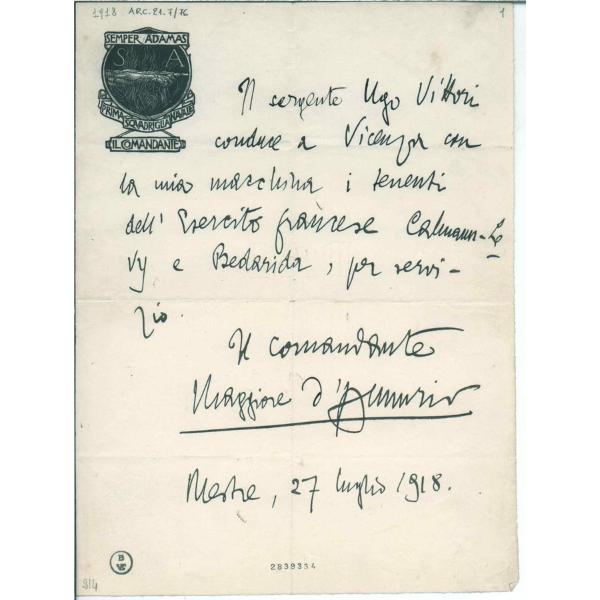 1918 ARC. 21. 7/76
1
SEMPER ADAMAS
S A
PRIMA SQUADRIGLIA NAVALE
IL COMANDANTE
Il sergente Ugo Vittori
conduce a Vicenza con
la mia macchina i tenenti
dell'Esercito francese Calmann-Le
vy e Bedarida, per servi-
zio.
Il comandante
Maggiore d'Annunzio
Mestre, 27 luglio 1918.
2839334